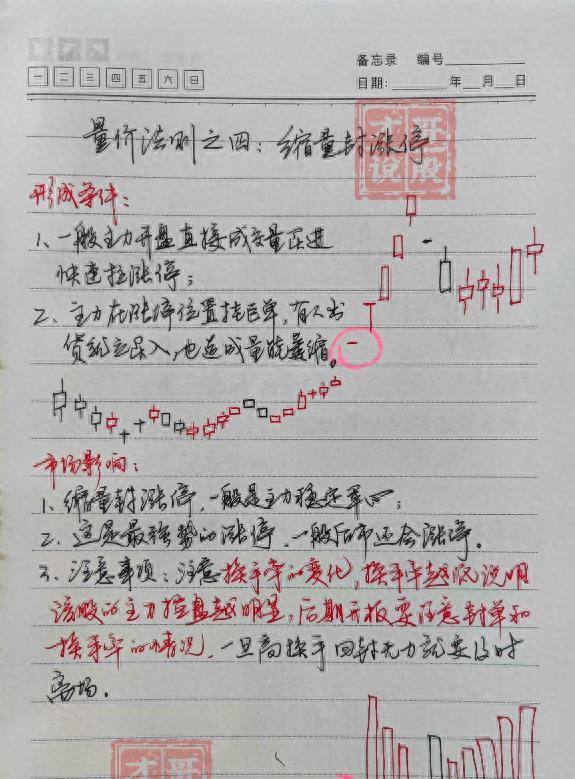 备忘录 编号
一 二 三 四 五 六 日
日期: 年 月 日
量价法则之四：缩量封涨停
才哥说股
形成条件：
1、一般主力开盘直接成交量跟进
快速拉涨停；
2、主力在涨停位置挂巨单，有人出
货就立马买入，也造成量能萎缩。
市场影响：
1、缩量封涨停，一般是主力稳定军心；
2、这是最强势的涨停，一般后市还会涨停。
3、注意事项：注意换手率的变化，换手率越低说明
该股的主力控盘越明显，后期开板要注意封单和
换手率的情况，一旦高换手回封无力就要及时
离场。